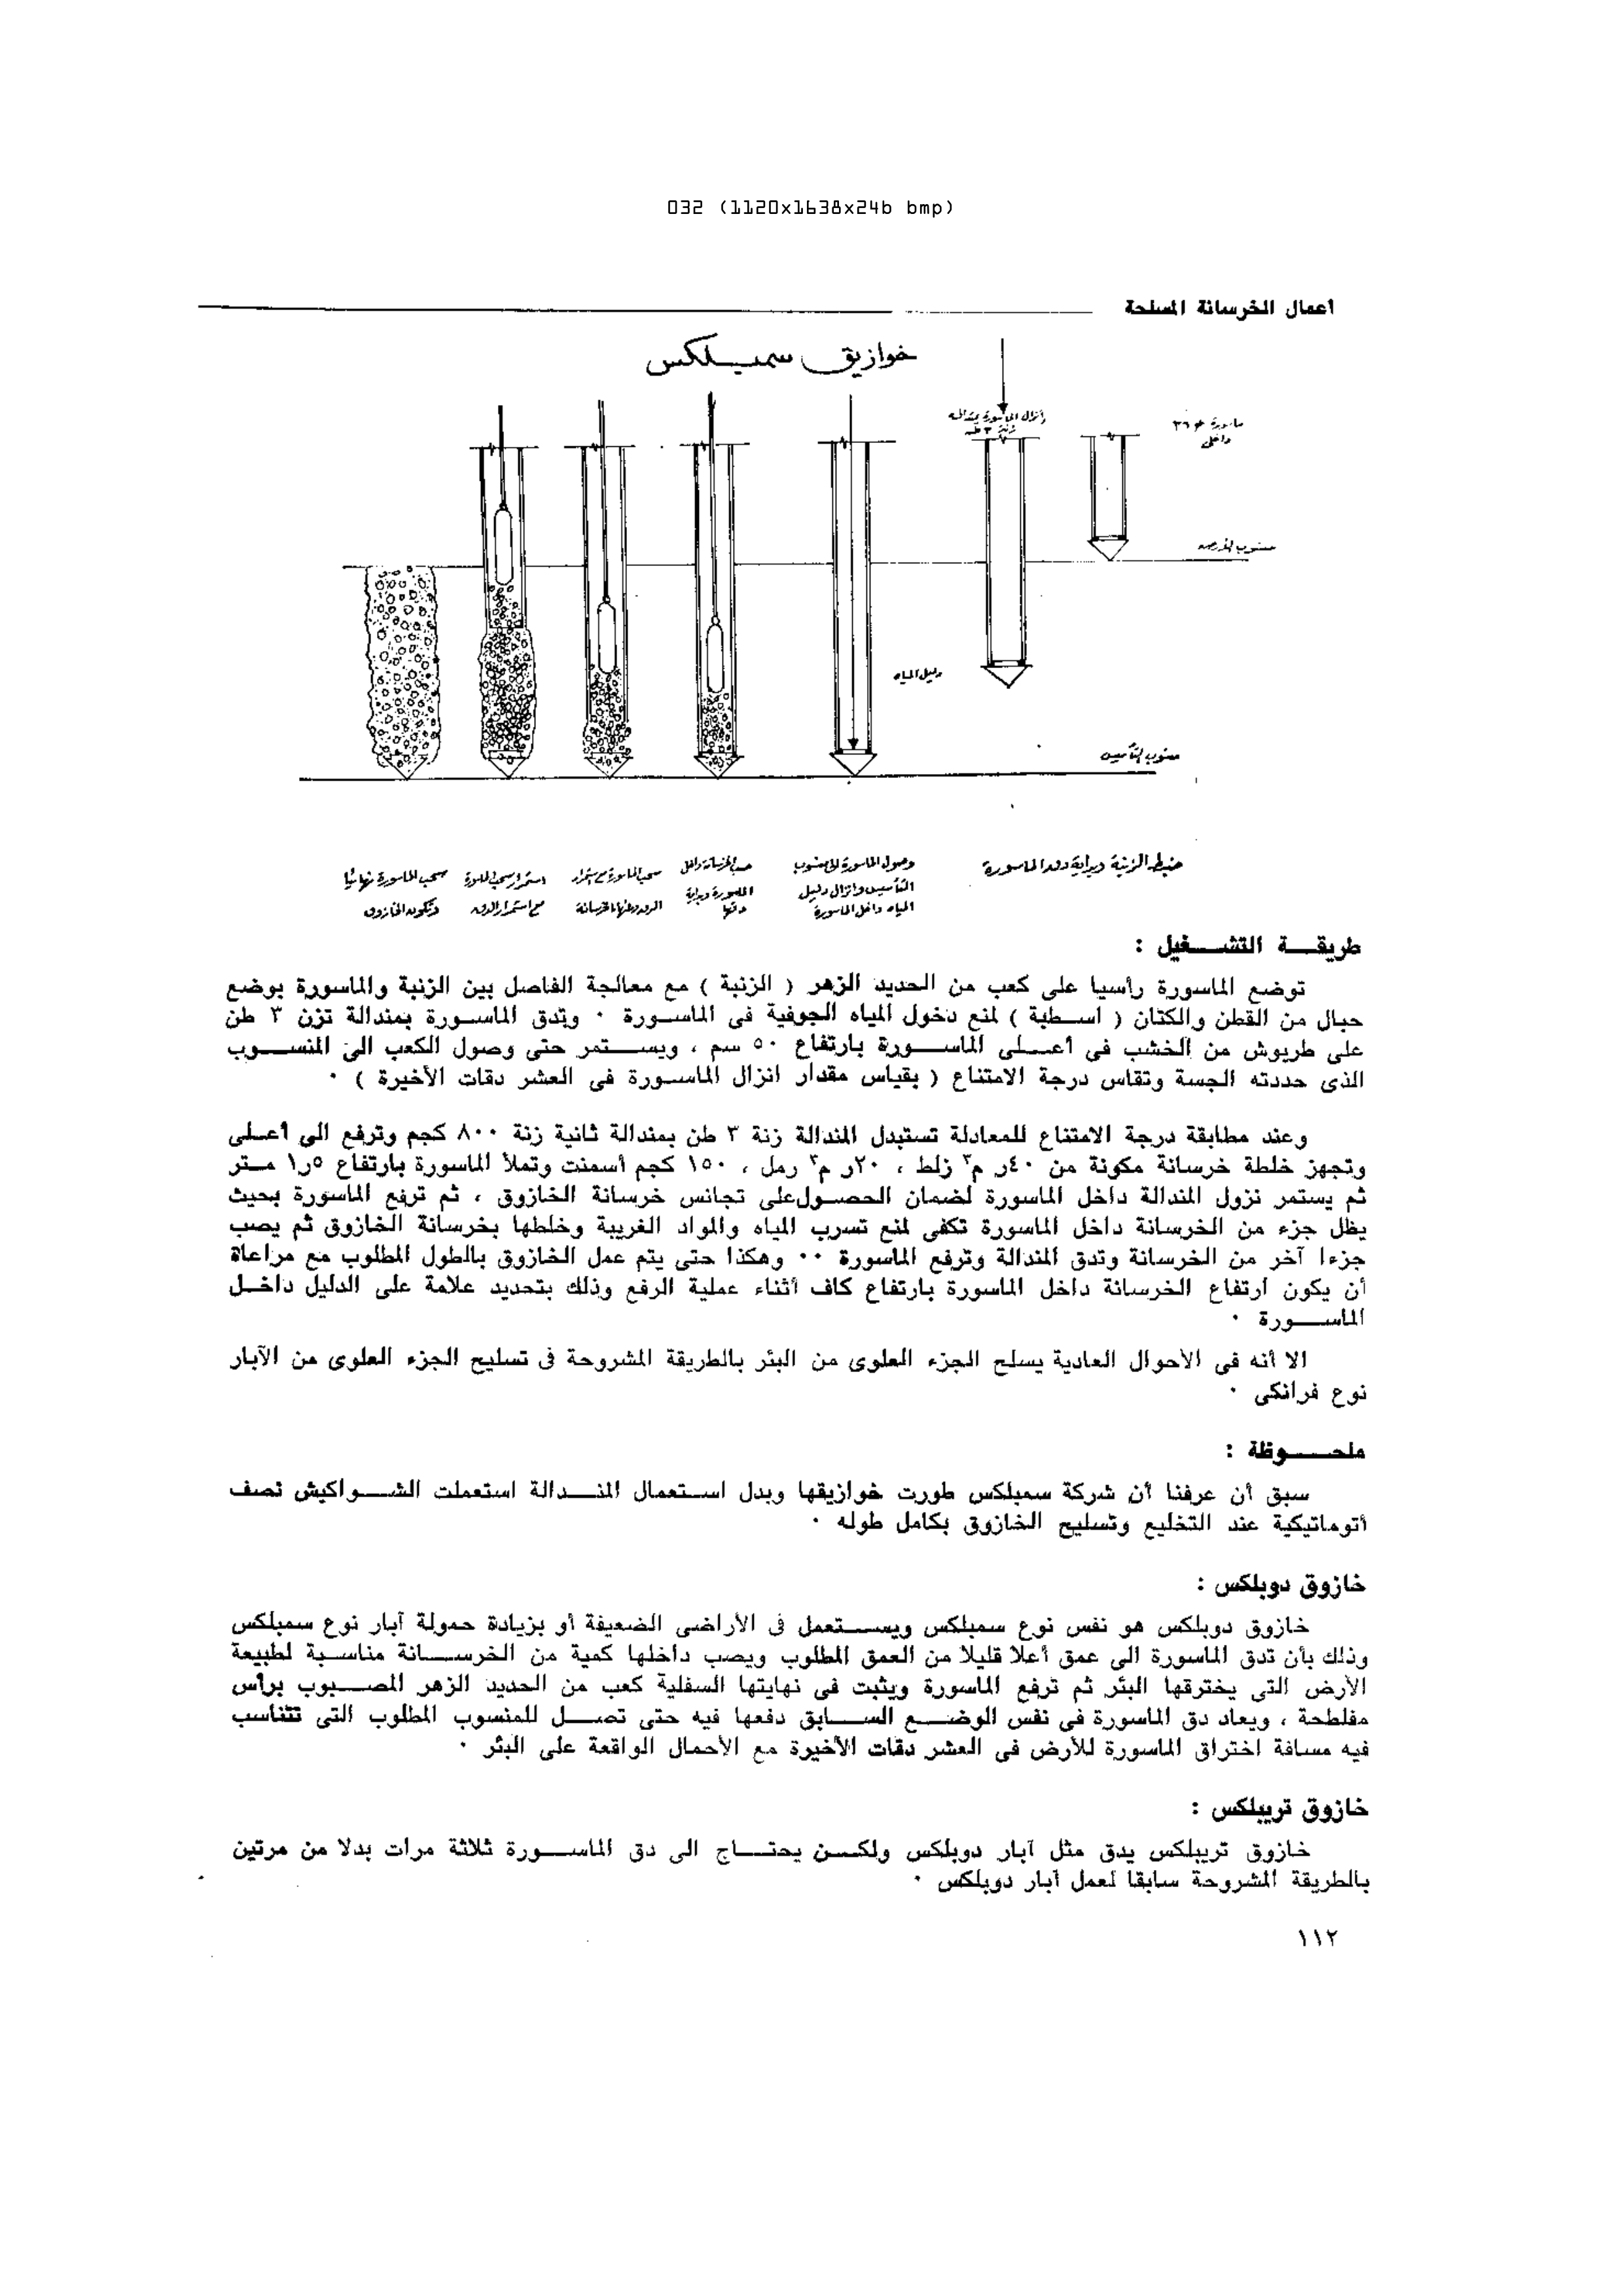 032 (1120x1638x24b bmp)
أعمال الخرسانة المسلحة
خوازيق سمبلكس
انزال الماسورة بمندالة
زنة ٣ طن
ماسورة ٣٦
داخلى
منسوب الأرض
دليل المياه
منسوب التأسيس
ضبط الزنبة وبداية دق الماسورة
وصول الماسورة الى منسوب
التأسيس وانزال دليل
المياه داخل الماسورة
صب الخرسانة داخل
الماسورة وبداية
دقها
سحب الماسورة مع استمرار
الدق وملئها بالخرسانة
استمرار سحب الماسورة
مع استمرار الدق
سحب الماسورة نهائيا
وتكون الخازوق
طريقة التشغيل :
توضع الماسورة رأسيا على كعب من الحديد الزهر ( الزنبة ) مع معالجة الفاصل بين الزنبة والماسورة بوضع
حبال من القطن والكتان ( اسطبة ) لمنع دخول المياه الجوفية فى الماسورة ٠ وتدق الماسورة بمندالة تزن ٣ طن
على طربوش من الخشب فى أعلى الماسورة بارتفاع ٥٠ سم ، ويستمر حتى وصول الكعب الى المنسوب
الذى حددته الجسة وتقاس درجة الامتناع ( بقياس مقدار انزال الماسورة فى العشر دقات الأخيرة ) ٠
وعند مطابقة درجة الامتناع للمعادلة تستبدل المندالة زنة ٣ طن بمندالة ثانية زنة ٨٠٠ كجم وترفع الى أعلى
وتجهز خلطة خرسانة مكونة من ٤٠ر م٣ زلط ، ٢٠ر م٣ رمل ، ١٥٠ كجم أسمنت وتملأ الماسورة بارتفاع ٥ر١ متر
ثم يستمر نزول المندالة داخل الماسورة لضمان الحصول على تجانس خرسانة الخازوق ، ثم ترفع الماسورة بحيث
يظل جزء من الخرسانة داخل الماسورة تكفى لمنع تسرب المياه والمواد الغريبة وخلطها بخرسانة الخازوق ثم يصب
جزءا آخر من الخرسانة وتدق المندالة وترفع الماسورة ٠٠ وهكذا حتى يتم عمل الخازوق بالطول المطلوب مع مراعاة
أن يكون ارتفاع الخرسانة داخل الماسورة بارتفاع كاف أثناء عملية الرفع وذلك بتحديد علامة على الدليل داخل
الماسورة ٠
الا أنه فى الأحوال العادية يسلح الجزء العلوى من البئر بالطريقة المشروحة فى تسليح الجزء العلوى من الآبار
نوع فرانكى ٠
ملحوظة :
سبق أن عرفنا أن شركة سمبلكس طورت خوازيقها وبدل استعمال المندالة استعملت الشواكيش نصف
أتوماتيكية عند التخليع وتسليح الخازوق بكامل طوله ٠
خازوق دوبلكس :
خازوق دوبلكس هو نفس نوع سمبلكس ويستعمل فى الأراضى الضعيفة أو بزيادة حمولة آبار نوع سمبلكس
وذلك بأن تدق الماسورة الى عمق أعلا قليلا من العمق المطلوب ويصب داخلها كمية من الخرسانة مناسبة لطبيعة
الأرض التى يخترقها البئر ثم ترفع الماسورة ويثبت فى نهايتها السفلية كعب من الحديد الزهر المصبوب برأس
مفلطحة ، ويعاد دق الماسورة فى نفس الوضع السابق دفعها فيه حتى تصل للمنسوب المطلوب التى تتناسب
فيه مسافة اختراق الماسورة للأرض فى العشر دقات الأخيرة مع الأحمال الواقعة على البئر ٠
خازوق تريبلكس :
خازوق تريبلكس يدق مثل آبار دوبلكس ولكن يحتاج الى دق الماسورة ثلاثة مرات بدلا من مرتين
بالطريقة المشروحة سابقا لعمل آبار دوبلكس ٠
١١٢